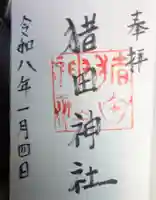 奉拝
猎田神社
令和八年一月四日